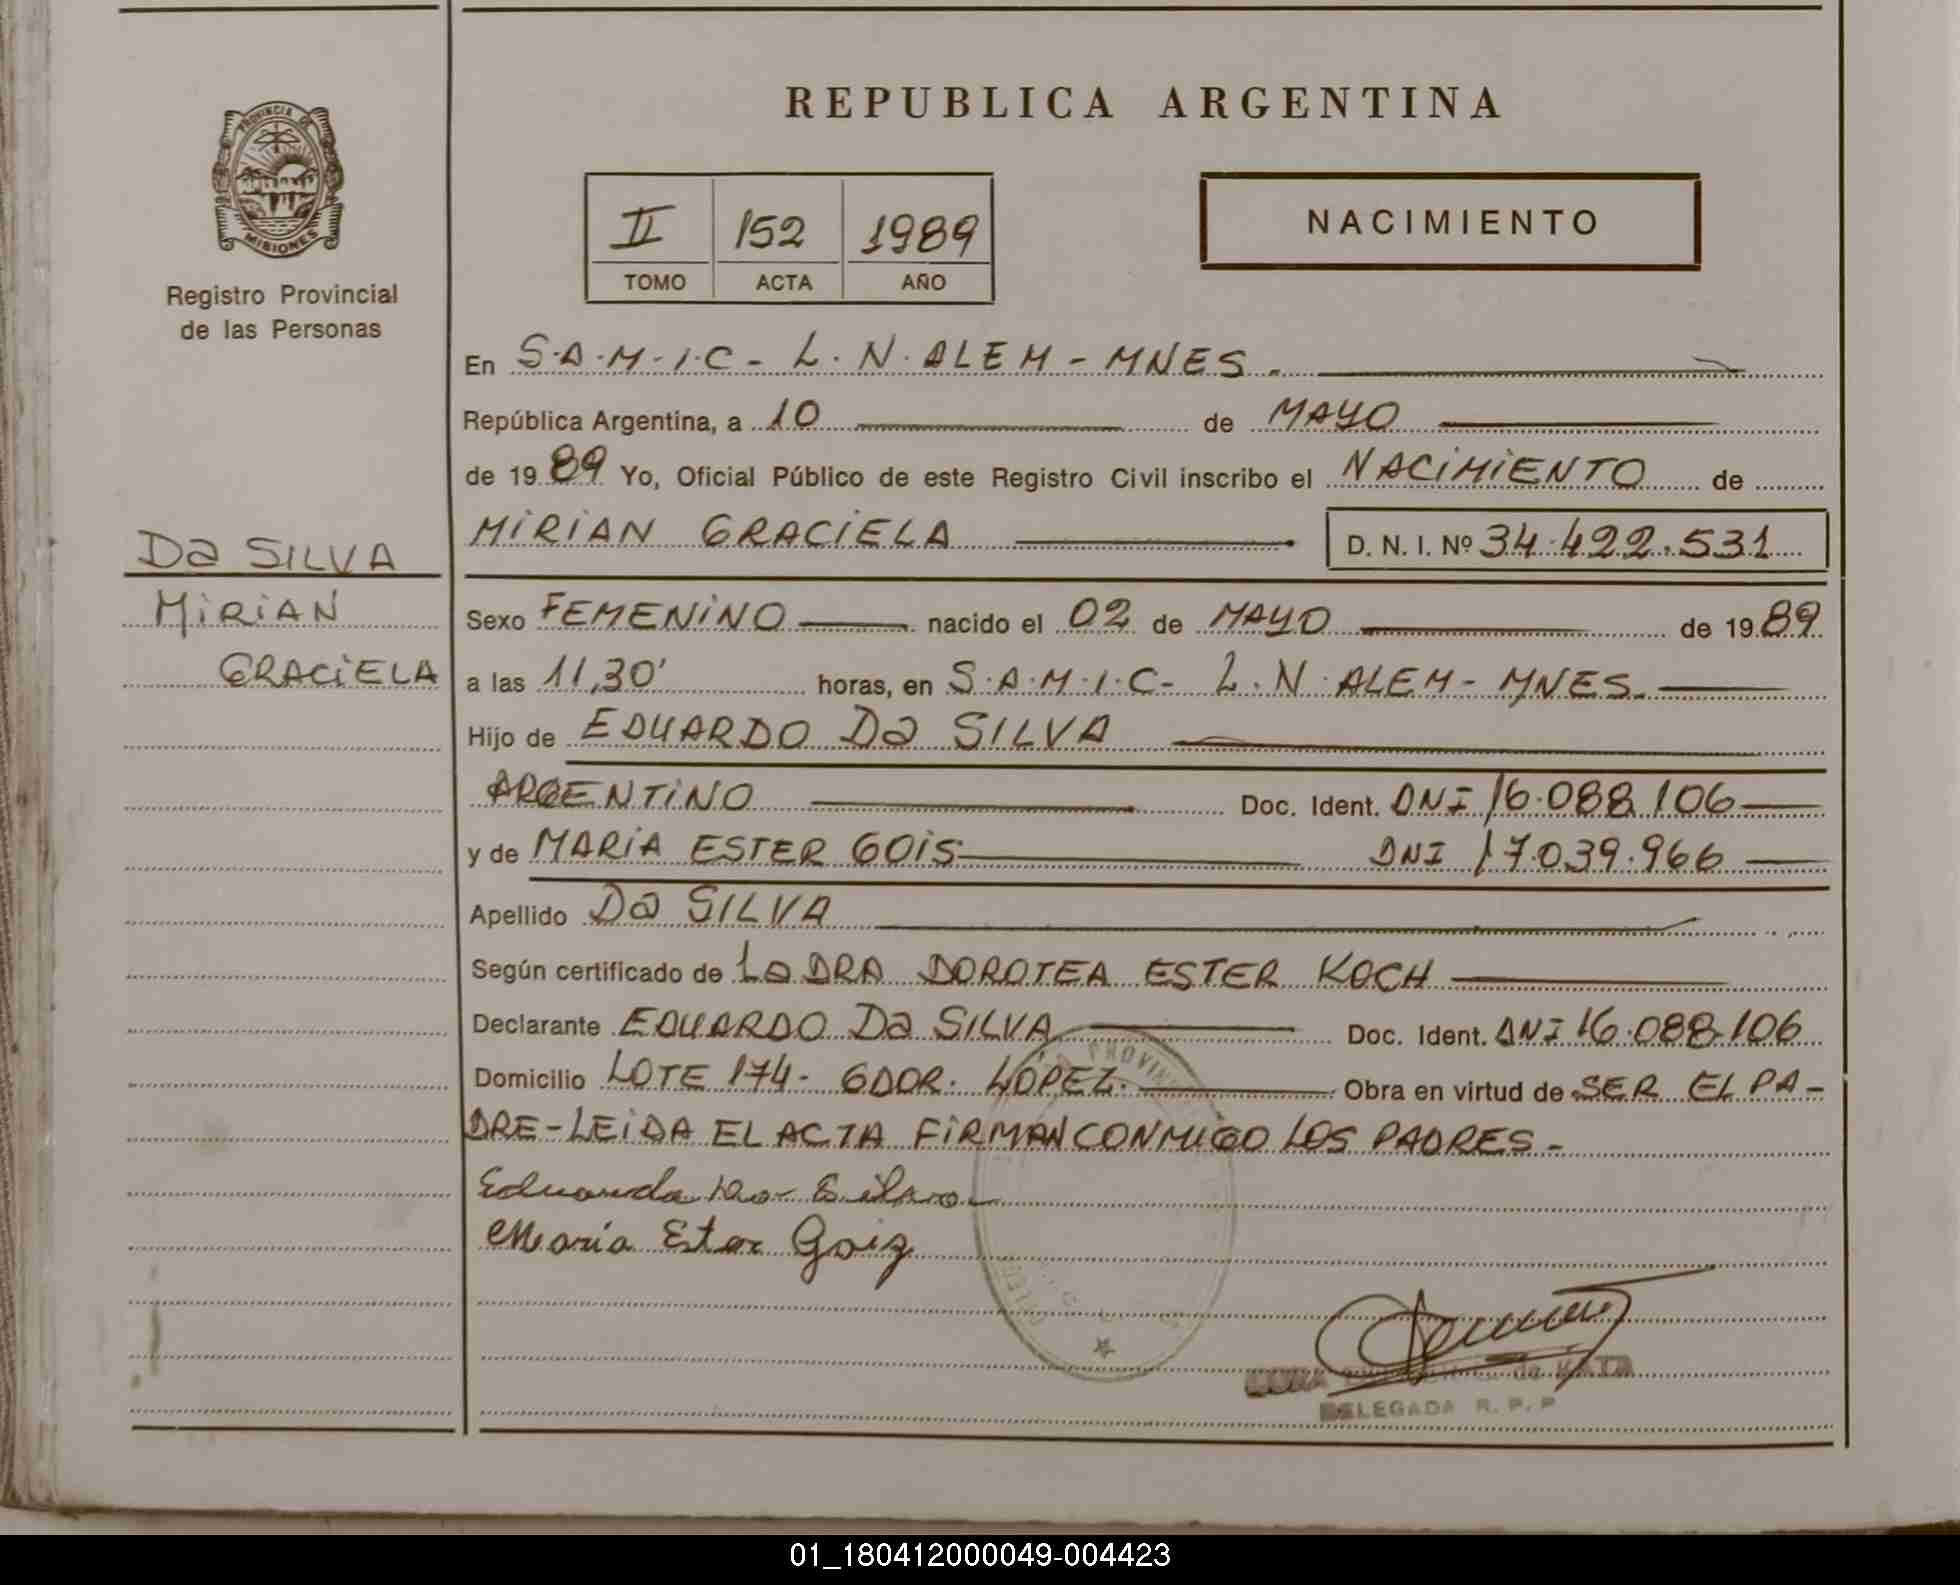 REPUBLICA ARGENTINA
PROVINCIA DE
MISIONES
Registro Provincial
de las Personas
II 152 1989
TOMO ACTA AÑO
NACIMIENTO
En S.A.M.I.C- L.N.ALEM-MNES.
República Argentina, a 10 de MAYO
de 1989 Yo, Oficial Público de este Registro Civil inscribo el NACIMIENTO de
MIRIAN GRACIELA D. N. I. Nº 34.422.531
Da SILVA
MIRIAN
GRACIELA
Sexo FEMENINO nacido el 02 de MAYO de 1989
a las 11,30' horas, en S.A.M.I.C- L.N.ALEM-MNES.
Hijo de EDUARDO Da SILVA
ARGENTINO Doc. Ident. DNI 16.088.106
y de MARIA ESTER GOIS DNI 17.039.966
Apellido Da SILVA
Según certificado de La DRA DOROTEA ESTER KOCH
Declarante EDUARDO Da SILVA Doc. Ident. DNI 16.088.106
Domicilio LOTE 174- GDOR. LOPEZ. Obra en virtud de SER EL PA-
DRE-LEIDA EL ACTA FIRMAN CONMIGO LOS PADRES-
Eduardo Da Silva
María Ester Goiz
PROVIN
de
DELEGADA R. P. P
01_180412000049-004423